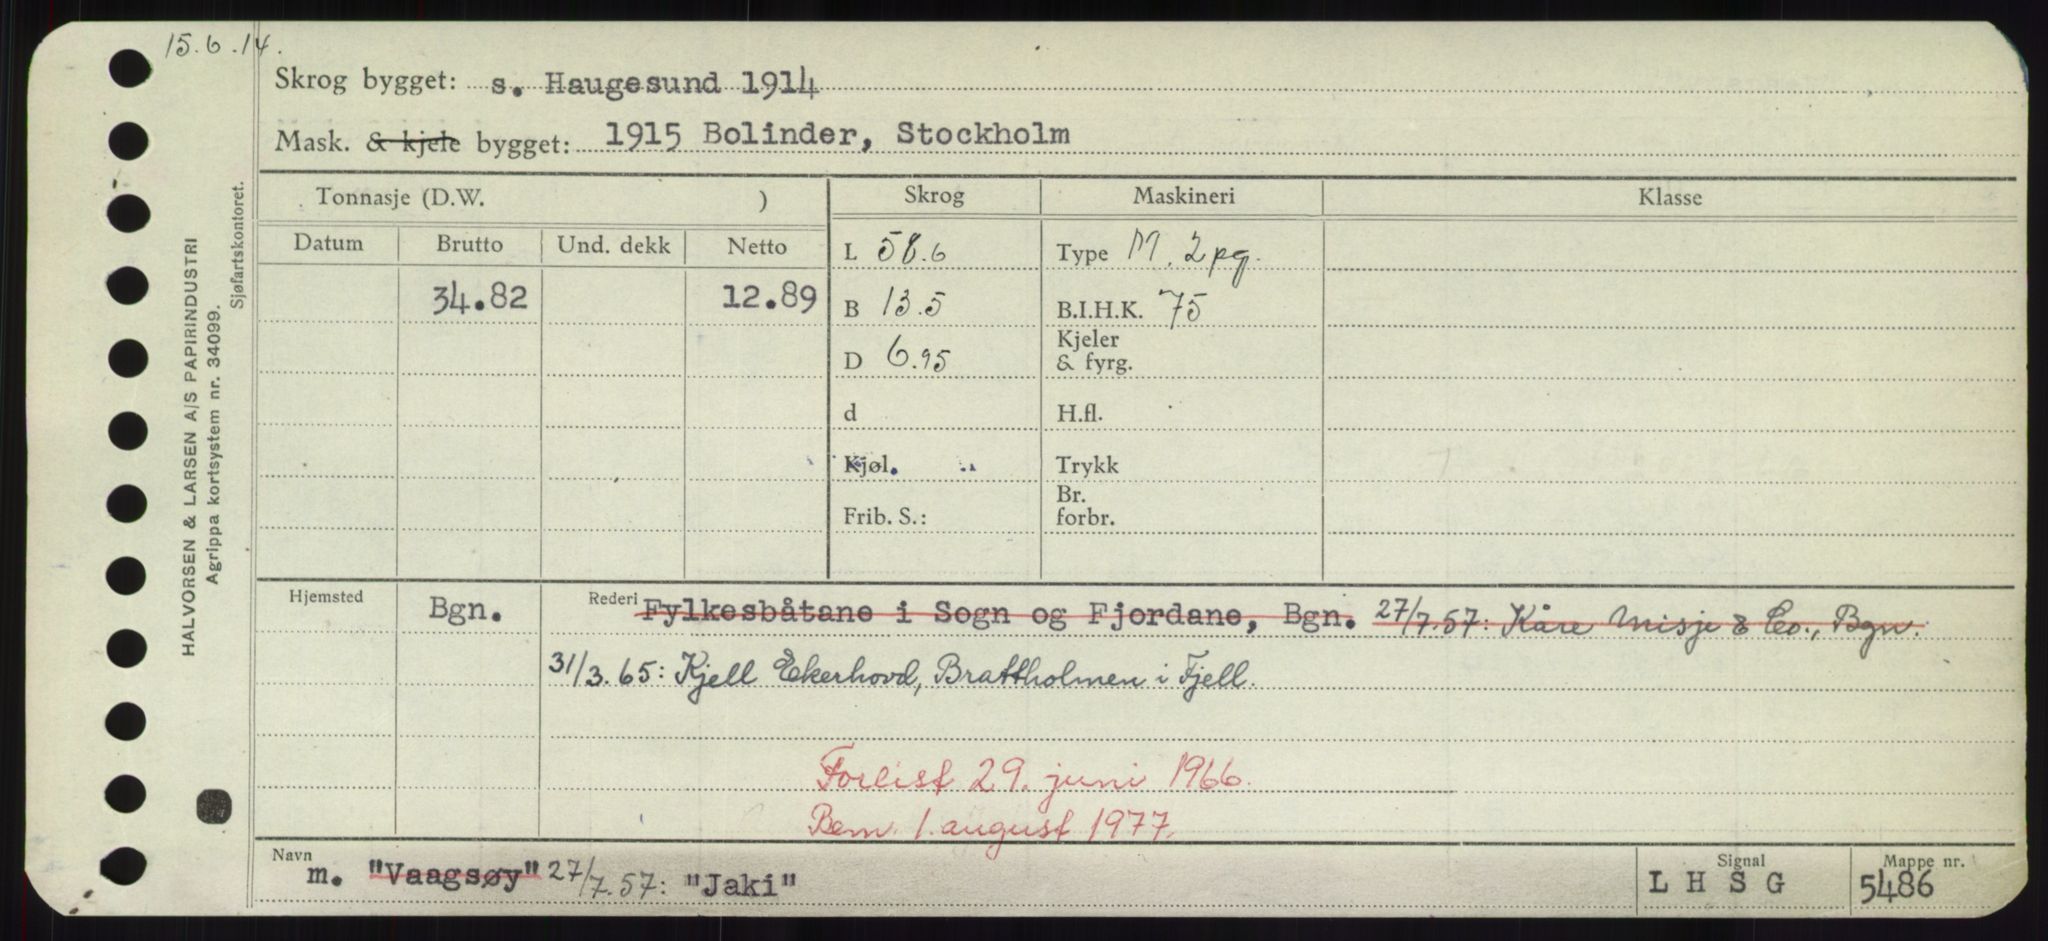 15.6.14.
Skrog bygget: s. Haugesund 1914
Mask. & kjele bygget: 1915 Bolinder, Stockholm
Tonnasje (D.W. ) Skrog Maskineri Klasse
Datum Brutto Und. dekk Netto L 58.6 Type M. 2 pg.
34.82 12.89 B 13.5 B.I.H.K. 75
D 6.95 Kjeler & fyrg.
d H.fl.
Kjøl. Trykk
Frib. S.: Br. forbr.
Hjemsted Bgn. Rederi Fylkesbåtane i Sogn og Fjordane, Bgn. 27/7.57: Kåre Misje & Co., Bgn.
31/3.65: Kjell Ekerhovd, Brattholmen i Fjell.
Forlist 29. juni 1966.
Bem. 1. august 1977.
Navn m. "Vaagsøy" 27/7.57: "Jaki" Signal L H S G Mappe nr. 5486
HALVORSEN & LARSEN A/S PAPIRINDUSTRI
Agrippa kortsystem nr. 34099.
Sjøfartskontoret.